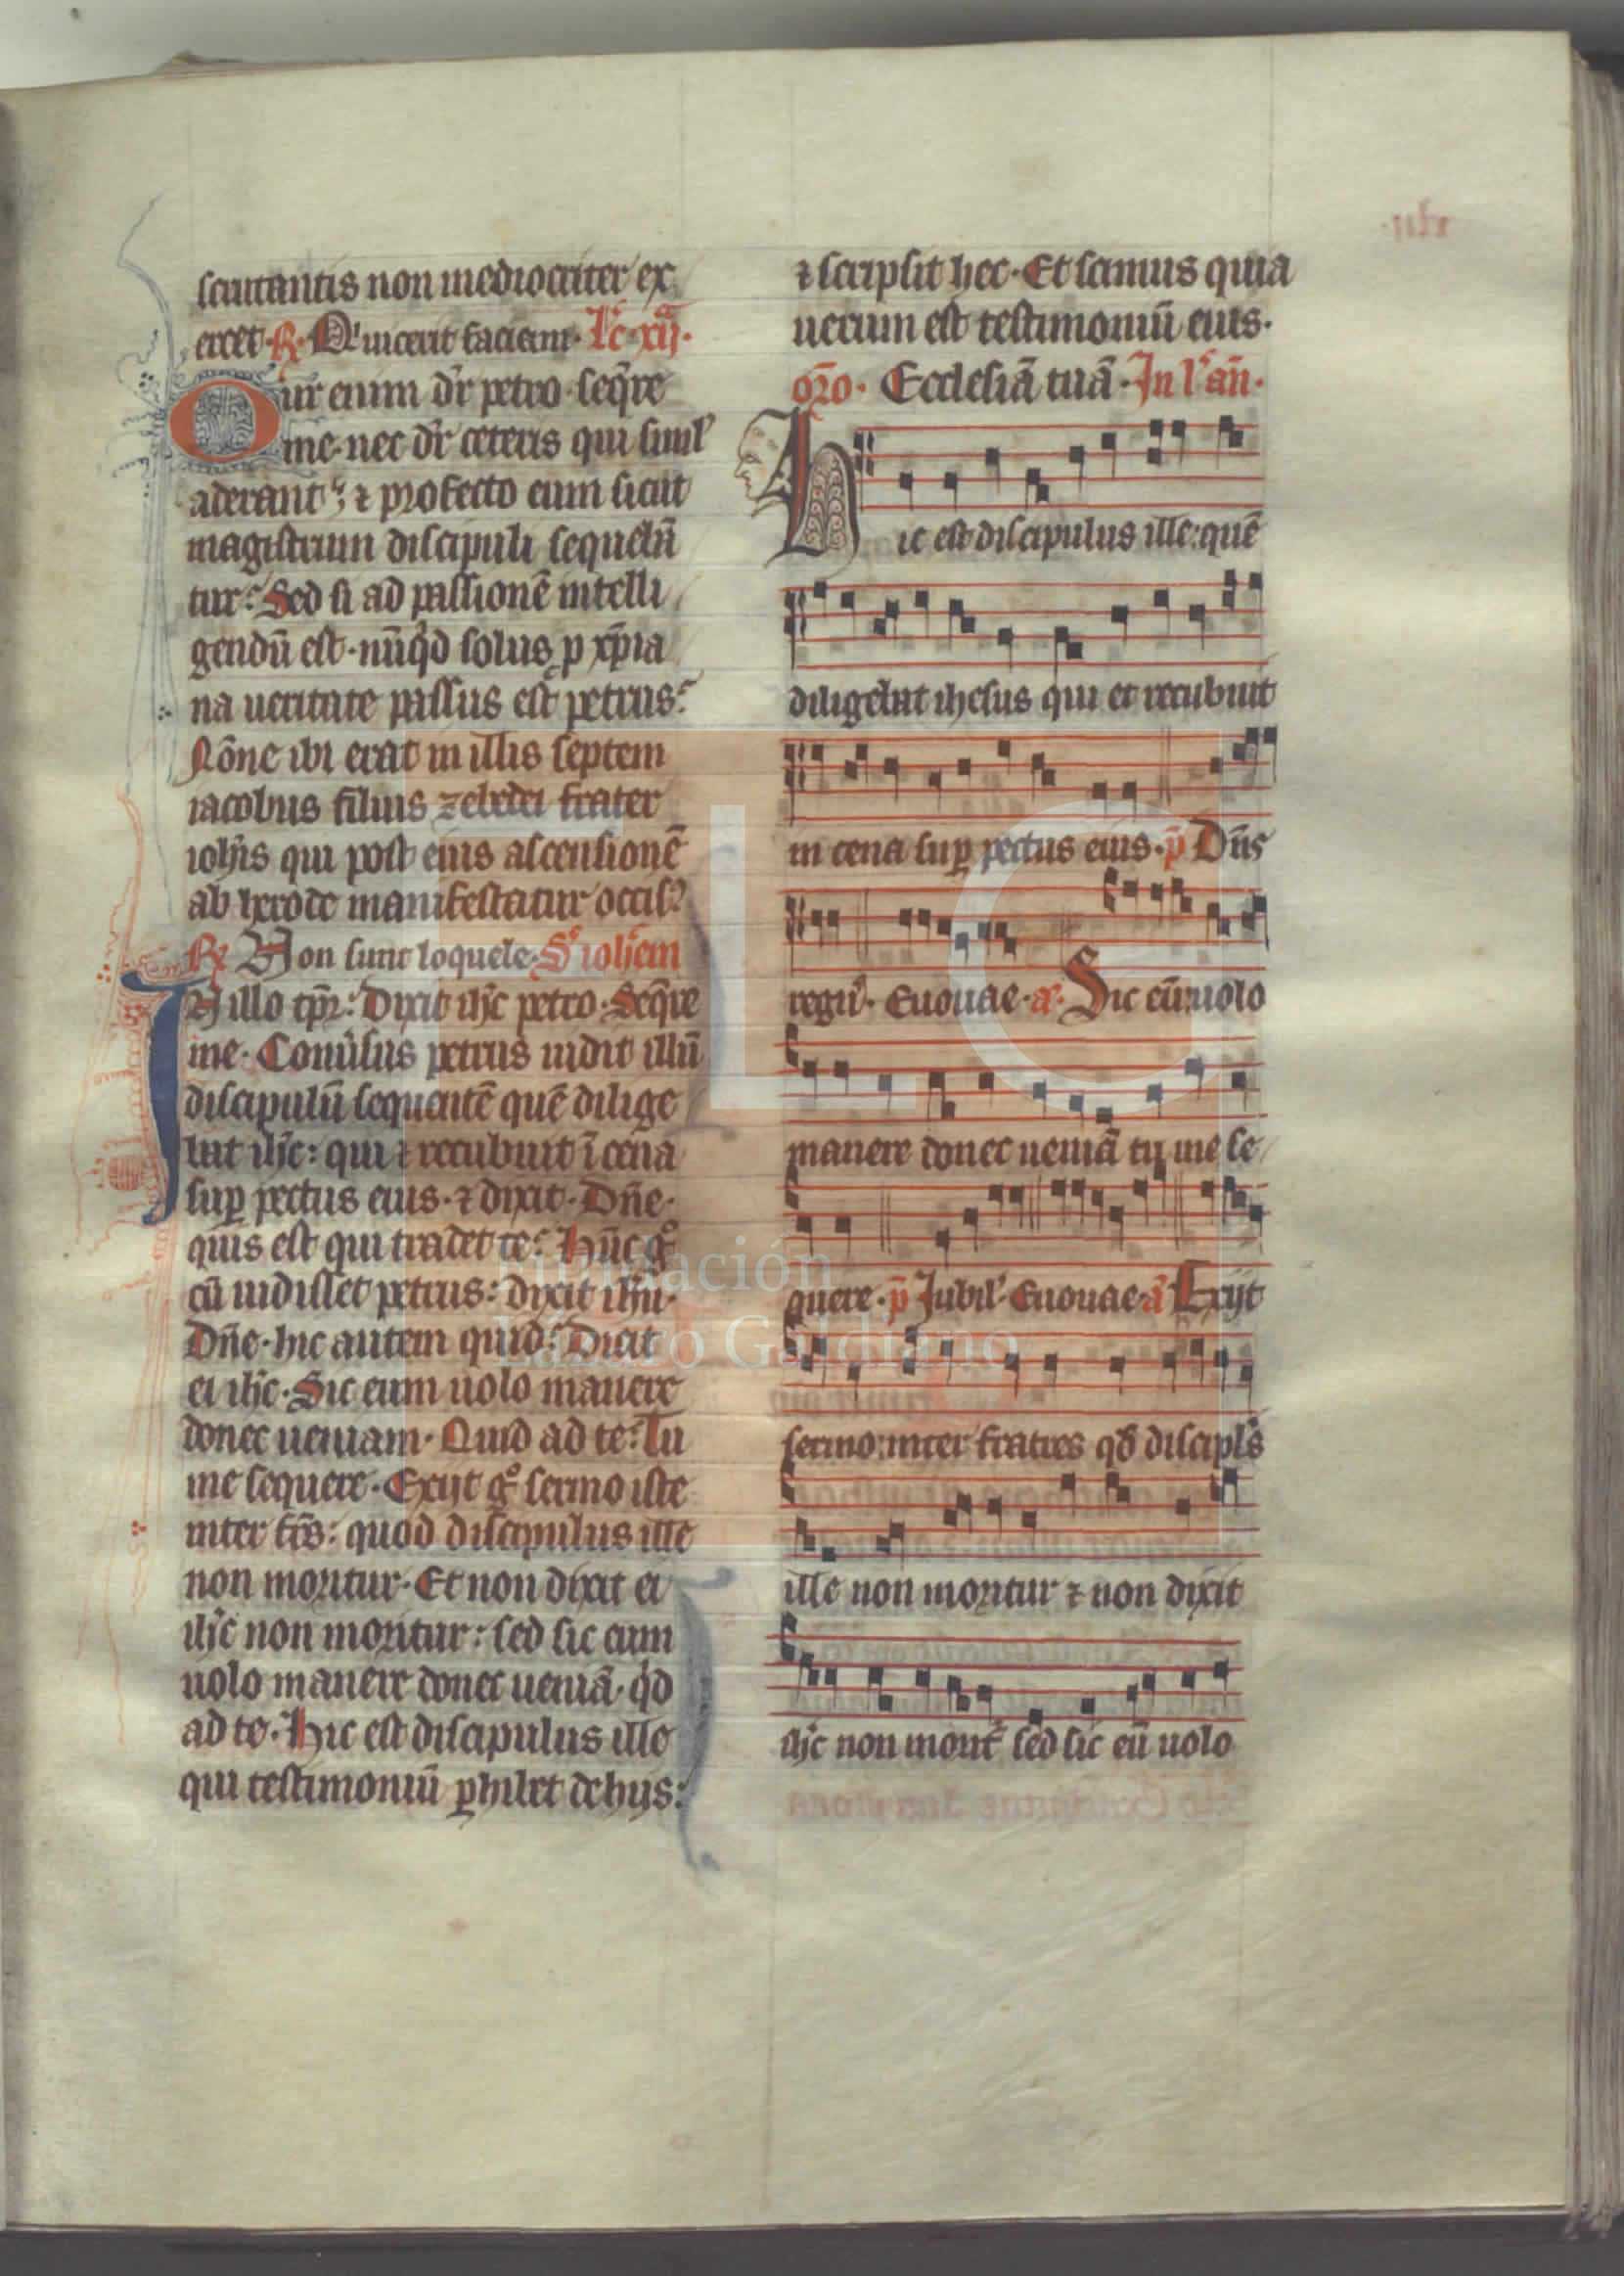 scrutantis non mediocriter ex
ercet. R. Qi uicerit faciam. Lc. xij.
Cur enim dr̄ petro seqr̄e
me. nec dr̄ ceteris qui simul
aderant; ⁊ profecto eum sicut
magistrum discipuli sequebā
tur? Sed si ad passionē intelli
gendū est. nūqd solus p xp̄ia
na ueritate passus est petrus?
Nōne ibi erat in illis septem
iacobus filius zebedei frater
ioh̄is qui post eius ascensionē
ab herode manifestatur occis?
R. Non sunt loquele. S. ioh̄em
In illo tp̄r: Dixit ih̄c petro. Seqr̄e
me. Conuersus petrus uidit illū
discipulū sequentē quē dilige
bat ih̄c: qui ⁊ recubuit ī cena
sup pectus eius. ⁊ dixit. Dn̄e.
quis est qui tradet te? Hūc gͦ
cū uidisset petrus: dixit ih̄u.
Dn̄e. hic autem quid? Dicit
ei ih̄c. Sic eum uolo manere
donec ueniam. Quid ad te? Tu
me sequere. Exijt gͦ sermo iste
inter fr̄es: quod discipulus ille
non moritur. Et non dixit ei
ih̄c non moritur: sed sic eum
uolo manere donec ueniā. qd
ad te. Hic est discipulus ille
qui testimoniū phibet de hijs:
⁊ scripsit hec. Et scimus quia
uerum est testimoniū eius.
oro. Ecclesiā tuā. In l. an̄.
Hic est discipulus ille: quē
diligebat ihesus qui et recubuit
in cena sup pectus eius. p̄ Dn̄s
regn̄. Euouae. a. Sic eū uolo
manere donec ueniā tu me se
quere. p̄ Jubil. Euouae. a Exijt
sermo: inter fratres qd discipls
ille non moritur ⁊ non dixit
ih̄c non morit sed sic eū uolo
FLG
Fundación
Lázaro Galdiano